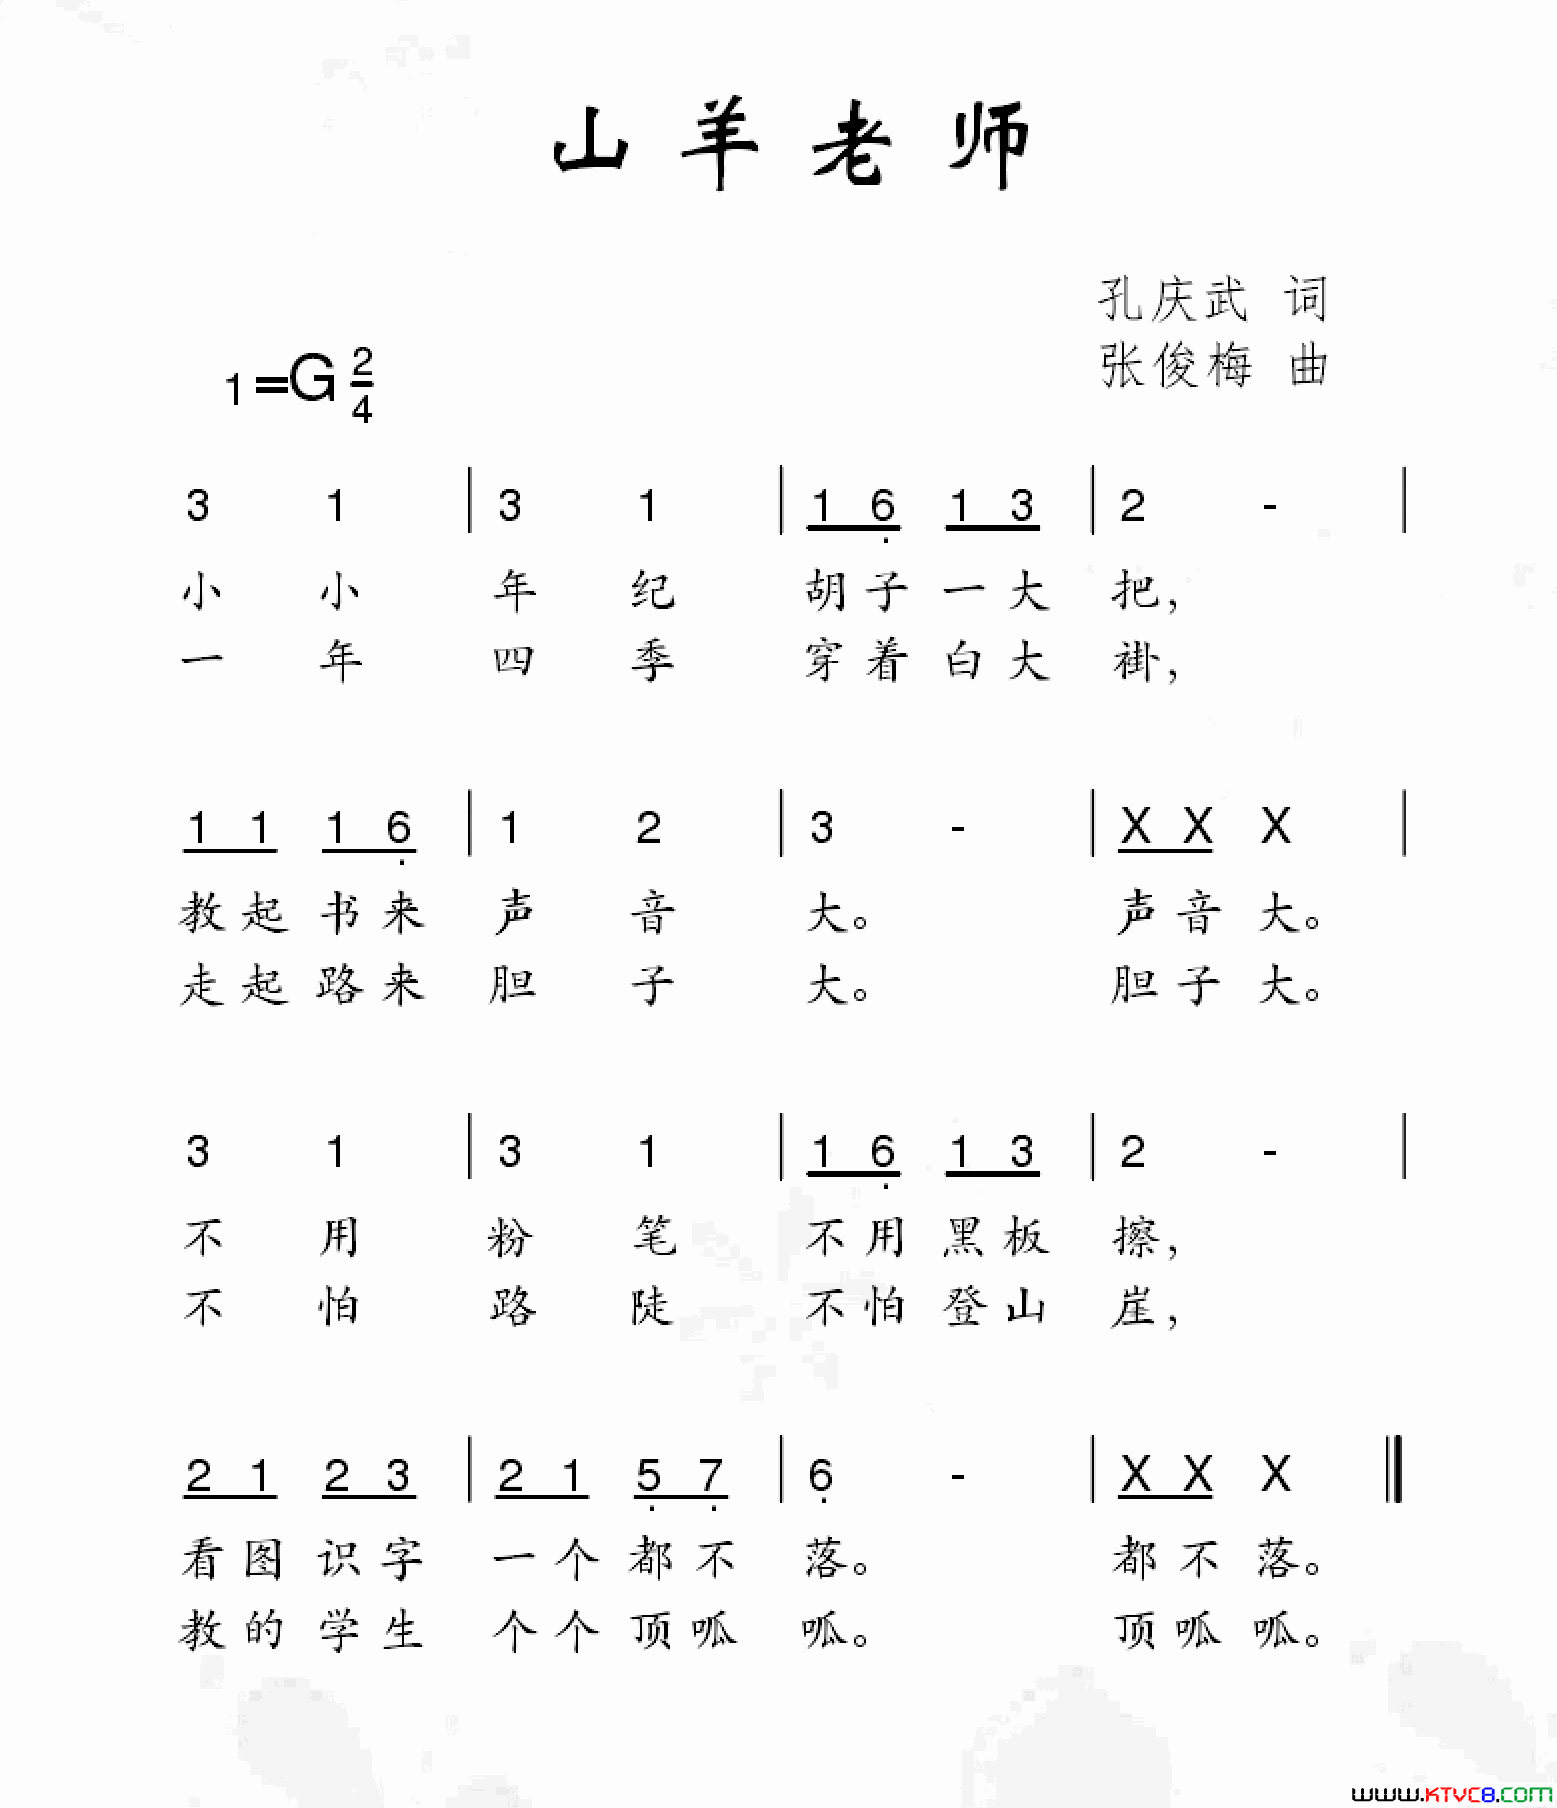 山羊老师
孔庆武 词
张俊梅 曲
1=G 2/4
3 1 | 3 1 | 1 6̣ 1 3 | 2 - |
小 小 年 纪 胡 子 一 大 把,
一 年 四 季 穿 着 白 大 褂,
1 1 1 6̣ | 1 2 | 3 - | X X X |
教 起 书 来 声 音 大。 声 音 大。
走 起 路 来 胆 子 大。 胆 子 大。
3 1 | 3 1 | 1 6̣ 1 3 | 2 - |
不 用 粉 笔 不 用 黑 板 擦,
不 怕 路 陡 不 怕 登 山 崖,
2 1 2 3 | 2 1 5̣ 7̣ | 6̣ - | X X X ‖
看 图 识 字 一 个 都 不 落。 都 不 落。
教 的 学 生 个 个 顶 呱 呱。 顶 呱 呱。
www.KTVC8.COM